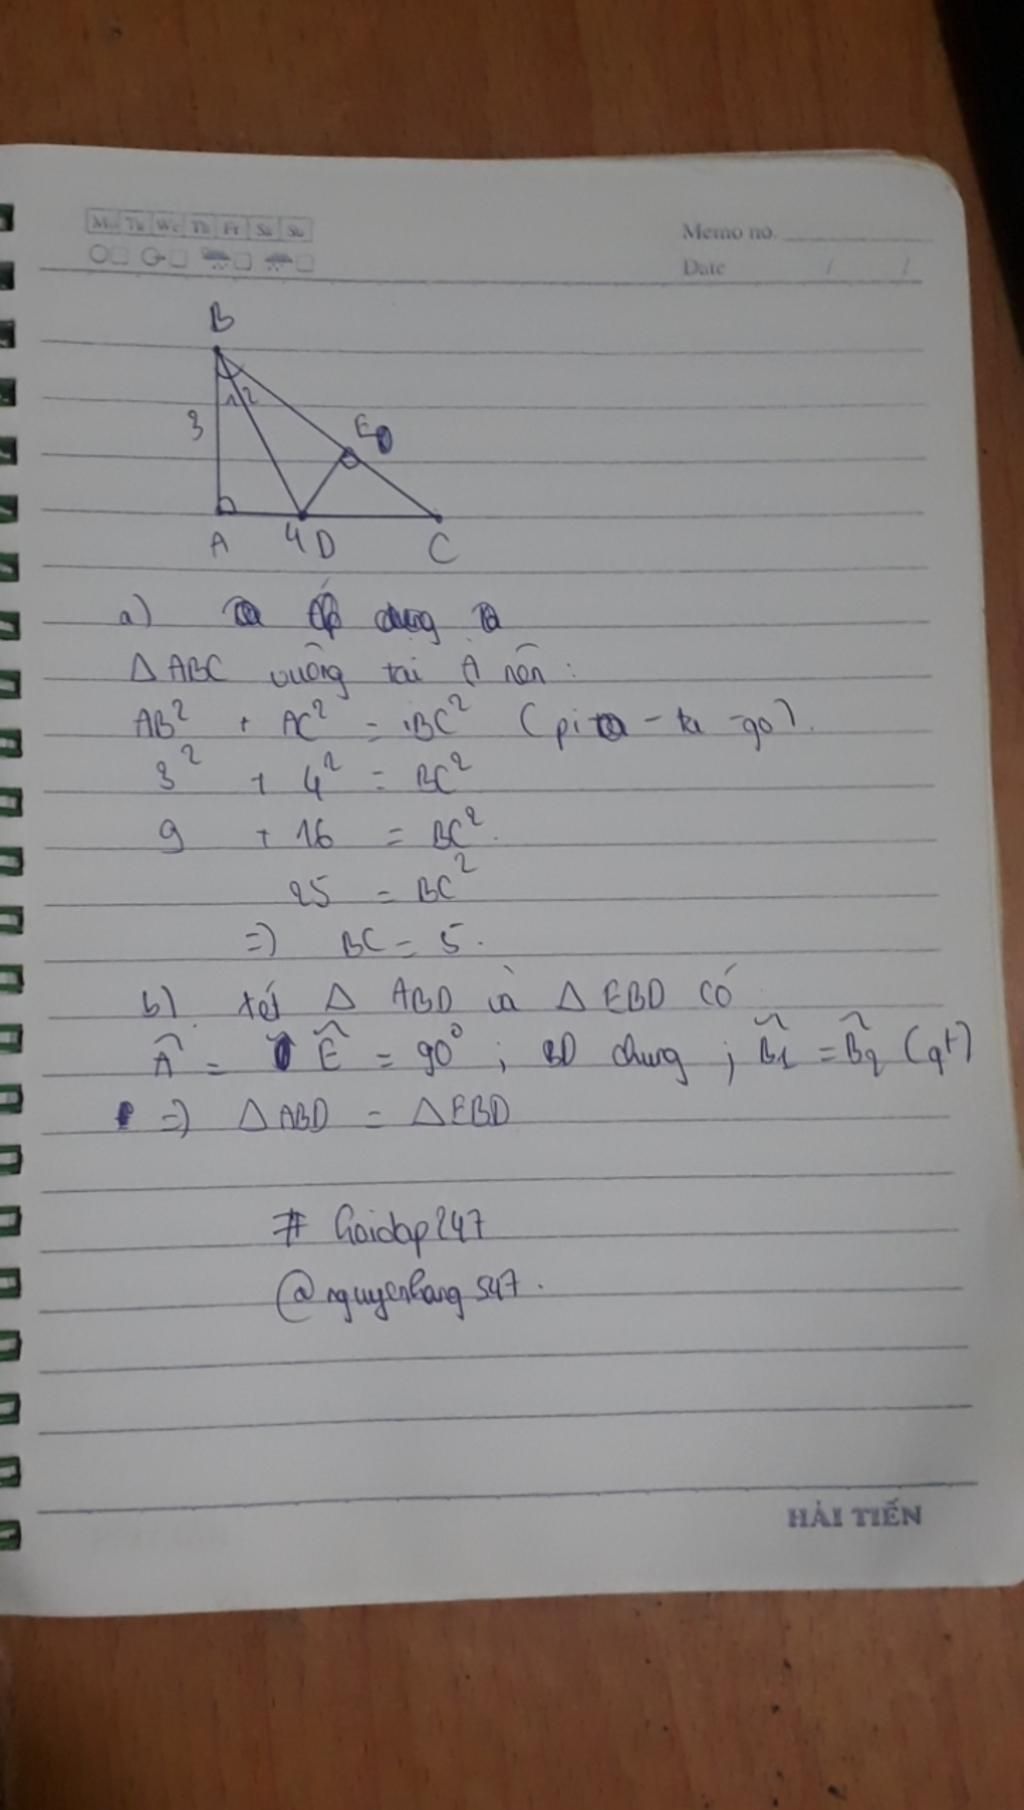 Mo Tu We Th Fr Sa Su
Memo no.
Date / /
B
1 2
3
E
A 4 D C
a)
ΔABC vuông tại A nên :
AB² + AC² = BC² (pi - ta - go).
3² + 4² = BC²
9 + 16 = BC².
25 = BC²
=) BC = 5.
b) xét Δ ABD và Δ EBD có
Â = Ê = 90° ; BD chung ; B̂1 = B̂2 (gt)
=) ΔABD = ΔEBD
# Hoidap247
@nguyenhang547.
HẢI TIẾN